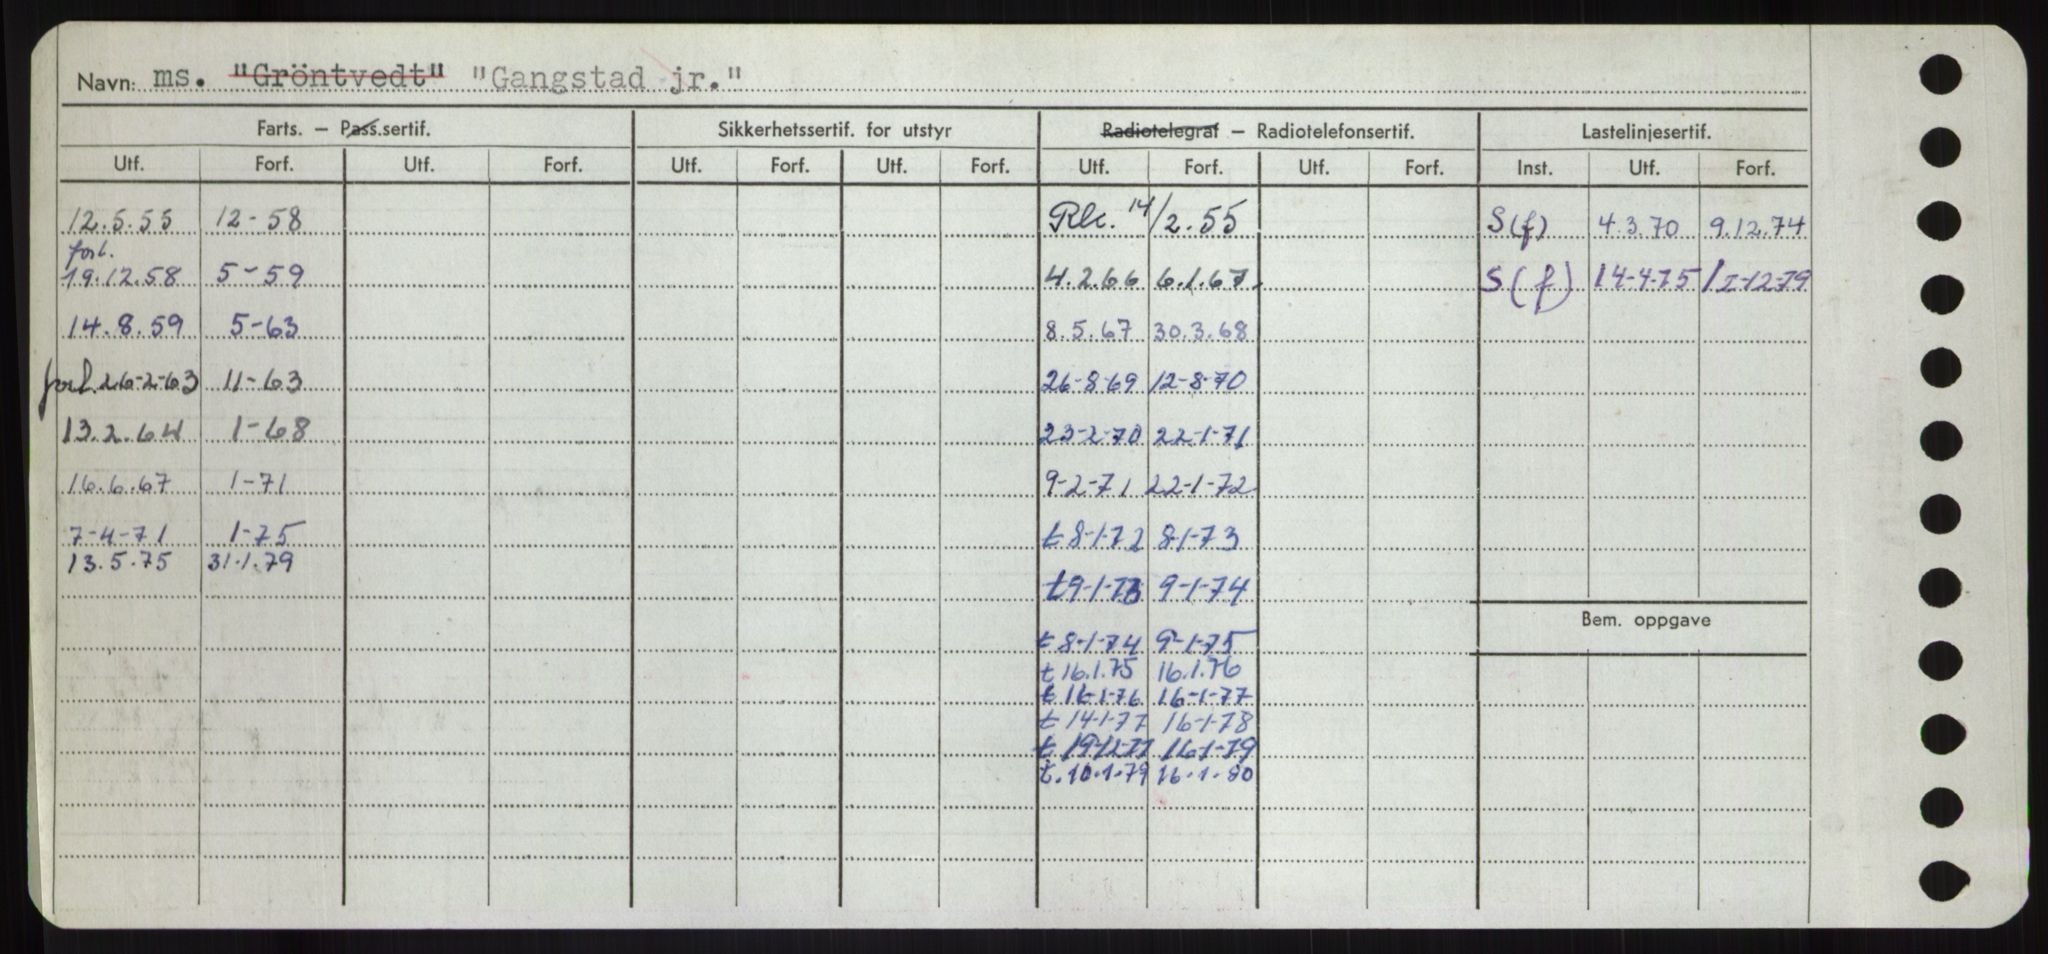 Navn: ms. "Gröntvedt" "Gangstad jr."
Farts. – Pass.sertif. Sikkerhetssertif. for utstyr Radiotelegraf – Radiotelefonsertif. Lastelinjesertif.
Utf. Forf. Utf. Forf. Utf. Forf. Utf. Forf. Utf. Forf. Utf. Forf. Inst. Utf. Forf.
12.5.55 12-58 14/2.55 S(f) 4.3.70 9.12.74
forl.
19.12.58 5-59 4.2.66 6.1.67 S(f) 14-4-75 12-12-79
14.8.59 5-63 8.5.67 30.3.68
forl. 26-2-63 11-63 26-8-69 12-8-70
13.2.64 1-68 23-2-70 22-1-71
16.6.67 1-71 9-2-71 22-1-72
7-4-71 1-75 t 8-1-72 8-1-73
13.5.75 31.1.79
t 9-1-73 9-1-74
Bem. oppgave
t 8-1-74 9-1-75
t 16.1.75 16.1.76
t 16-1-76 16-1-77
t 14-1-77 16-1-78
t 19-12-77 16-1-79
t. 10.1.79 16.1.80